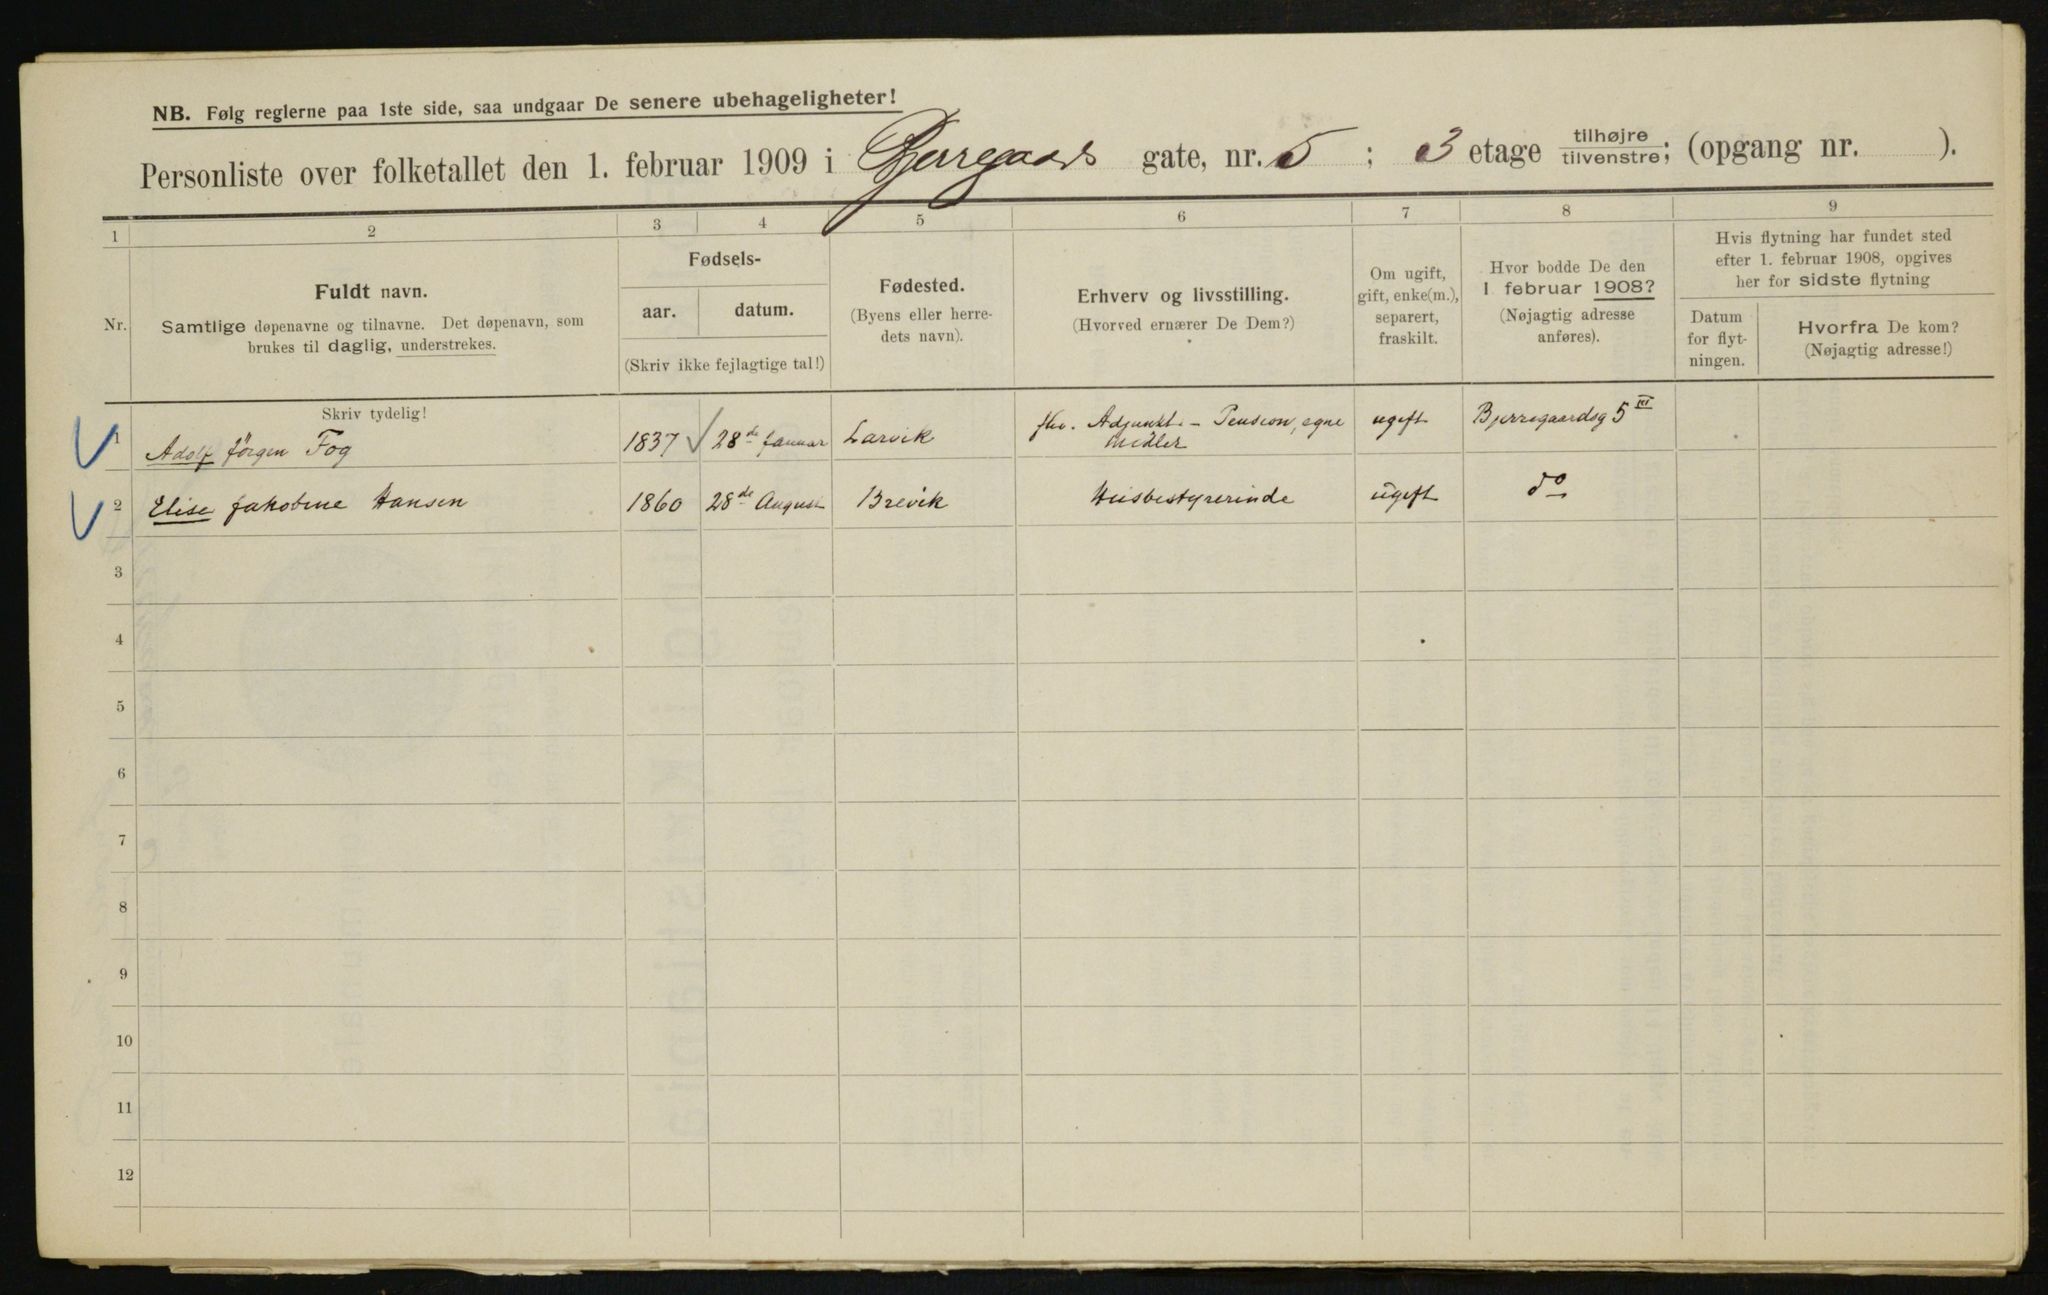 NB. Følg reglerne paa 1ste side, saa undgaar De senere ubehageligheter!
Personliste over folketallet den 1. februar 1909 i Bjerregaards gate, nr. 5 ; 3 etage tilhøjre/tilvenstre; (opgang nr. ).
1 2 3 4 5 6 7 8 9
Nr.
Fuldt navn.
Samtlige døpenavne og tilnavne. Det døpenavn, som
brukes til daglig, understrekes.
Fødsels-
aar. datum.
(Skriv ikke fejlagtige tal!)
Fødested.
(Byens eller herre-
dets navn).
Erhverv og livsstilling.
(Hvorved ernærer De Dem?)
Om ugift,
gift, enke(m.),
separert,
fraskilt.
Hvor bodde De den
1 februar 1908?
(Nøjagtig adresse
anføres).
Hvis flytning har fundet sted
efter 1. februar 1908, opgives
her for sidste flytning
Datum
for flyt-
ningen.
Hvorfra De kom?
(Nøjagtig adresse!)
Skriv tydelig!
1 Adolf Jörgen Fog 1837 28de Januar Larvik fhv. Adjunkt. - Pension, egne midler ugift Bjerregaardsg 5 III
2 Elise Jakobine Hansen 1860 28de August Brevik Husbestyrerinde ugift do
3
4
5
6
7
8
9
10
11
12